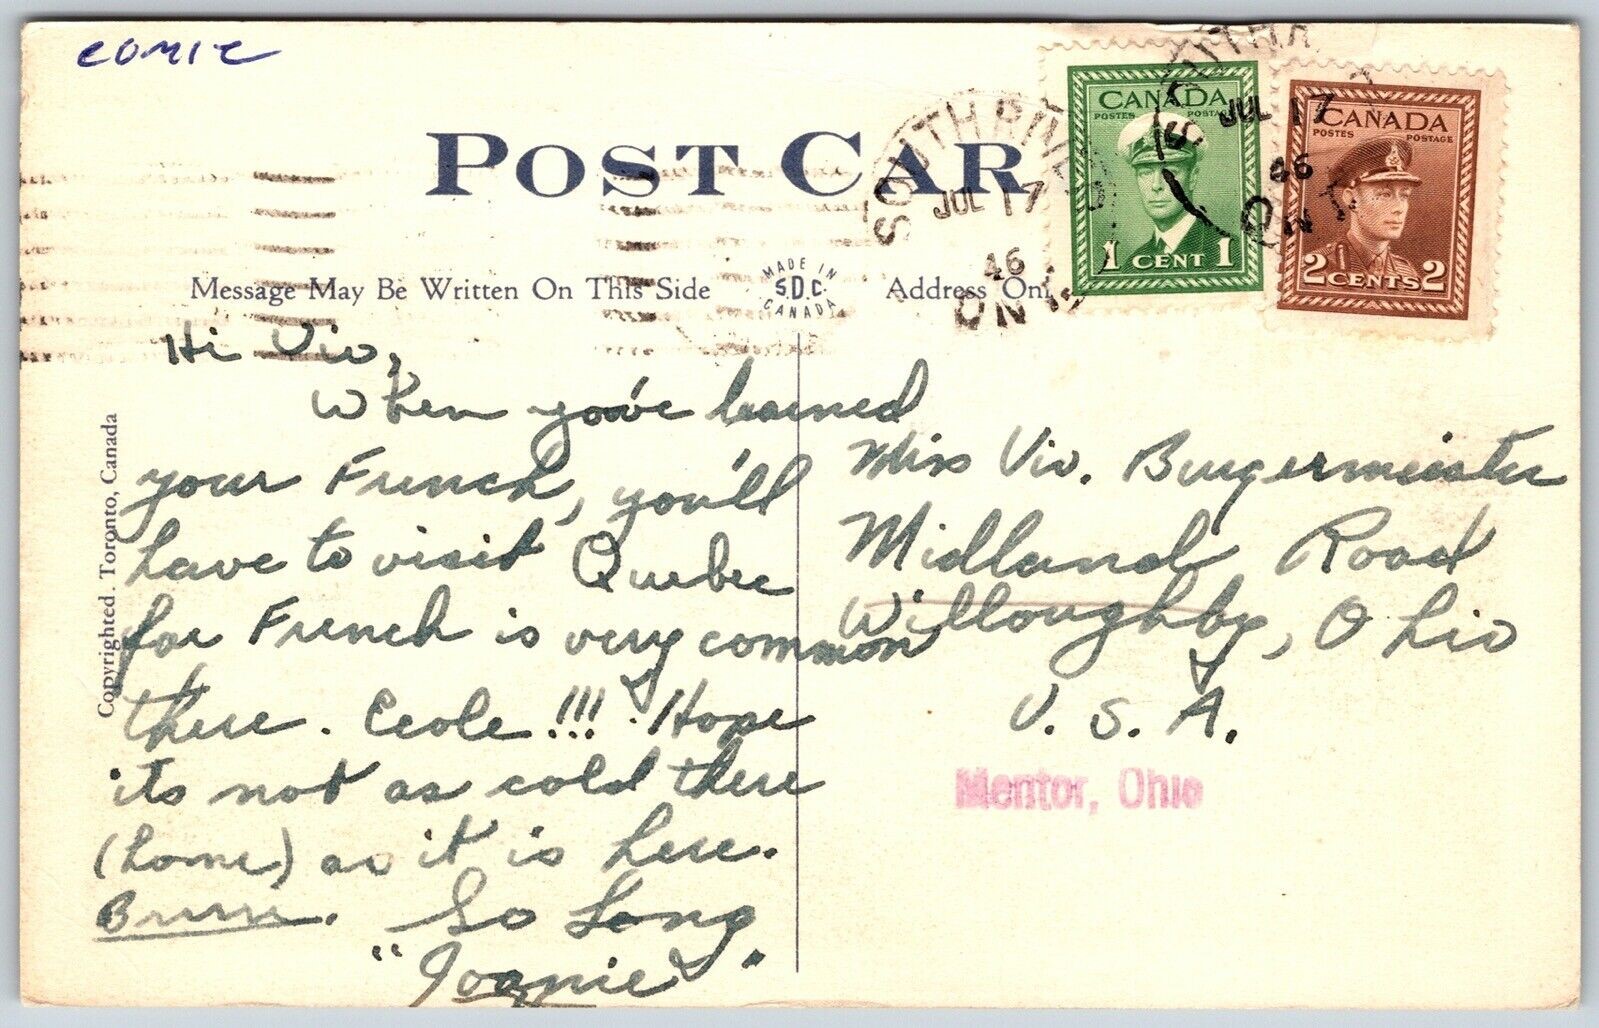 comic
POST CAR
SOUTH RIVER
JUL 17
46
ONT
CANADA
POSTES POSTAGE
1 CENT 1
SOUTH R
JUL 17
46
ONT
CANADA
POSTES POSTAGE
2 CENTS 2
Message May Be Written On This Side
MADE IN
S.D.C.
CANADA
Address Onl
Copyrighted. Toronto, Canada
Hi Viv,
When you've learned
your French, you'll
have to visit Quebec
for French is very common
there. Ecole!!! Hope
its not as cold there
(home) as it is here.
Brrrrr. So Long
"Joanie"
Miss Viv. Burgermeister
Midland Road
Willoughby, Ohio
U.S.A.
Mentor, Ohio